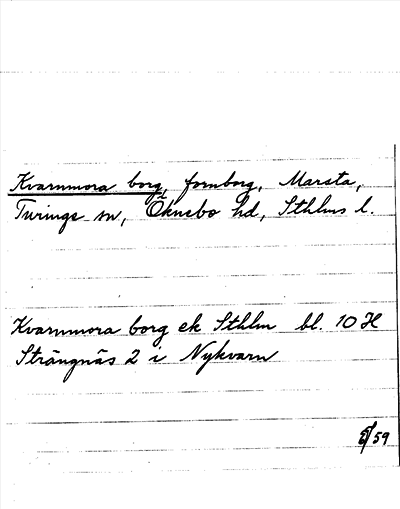 Kvarnmora borg, fornborg, Marsta,
Turinge sn, Öknebo hd, Sthlms l.
Kvarnmora borg ek Sthlm bl. 10 H
Strängnäs 2 i Nykvarn
/59